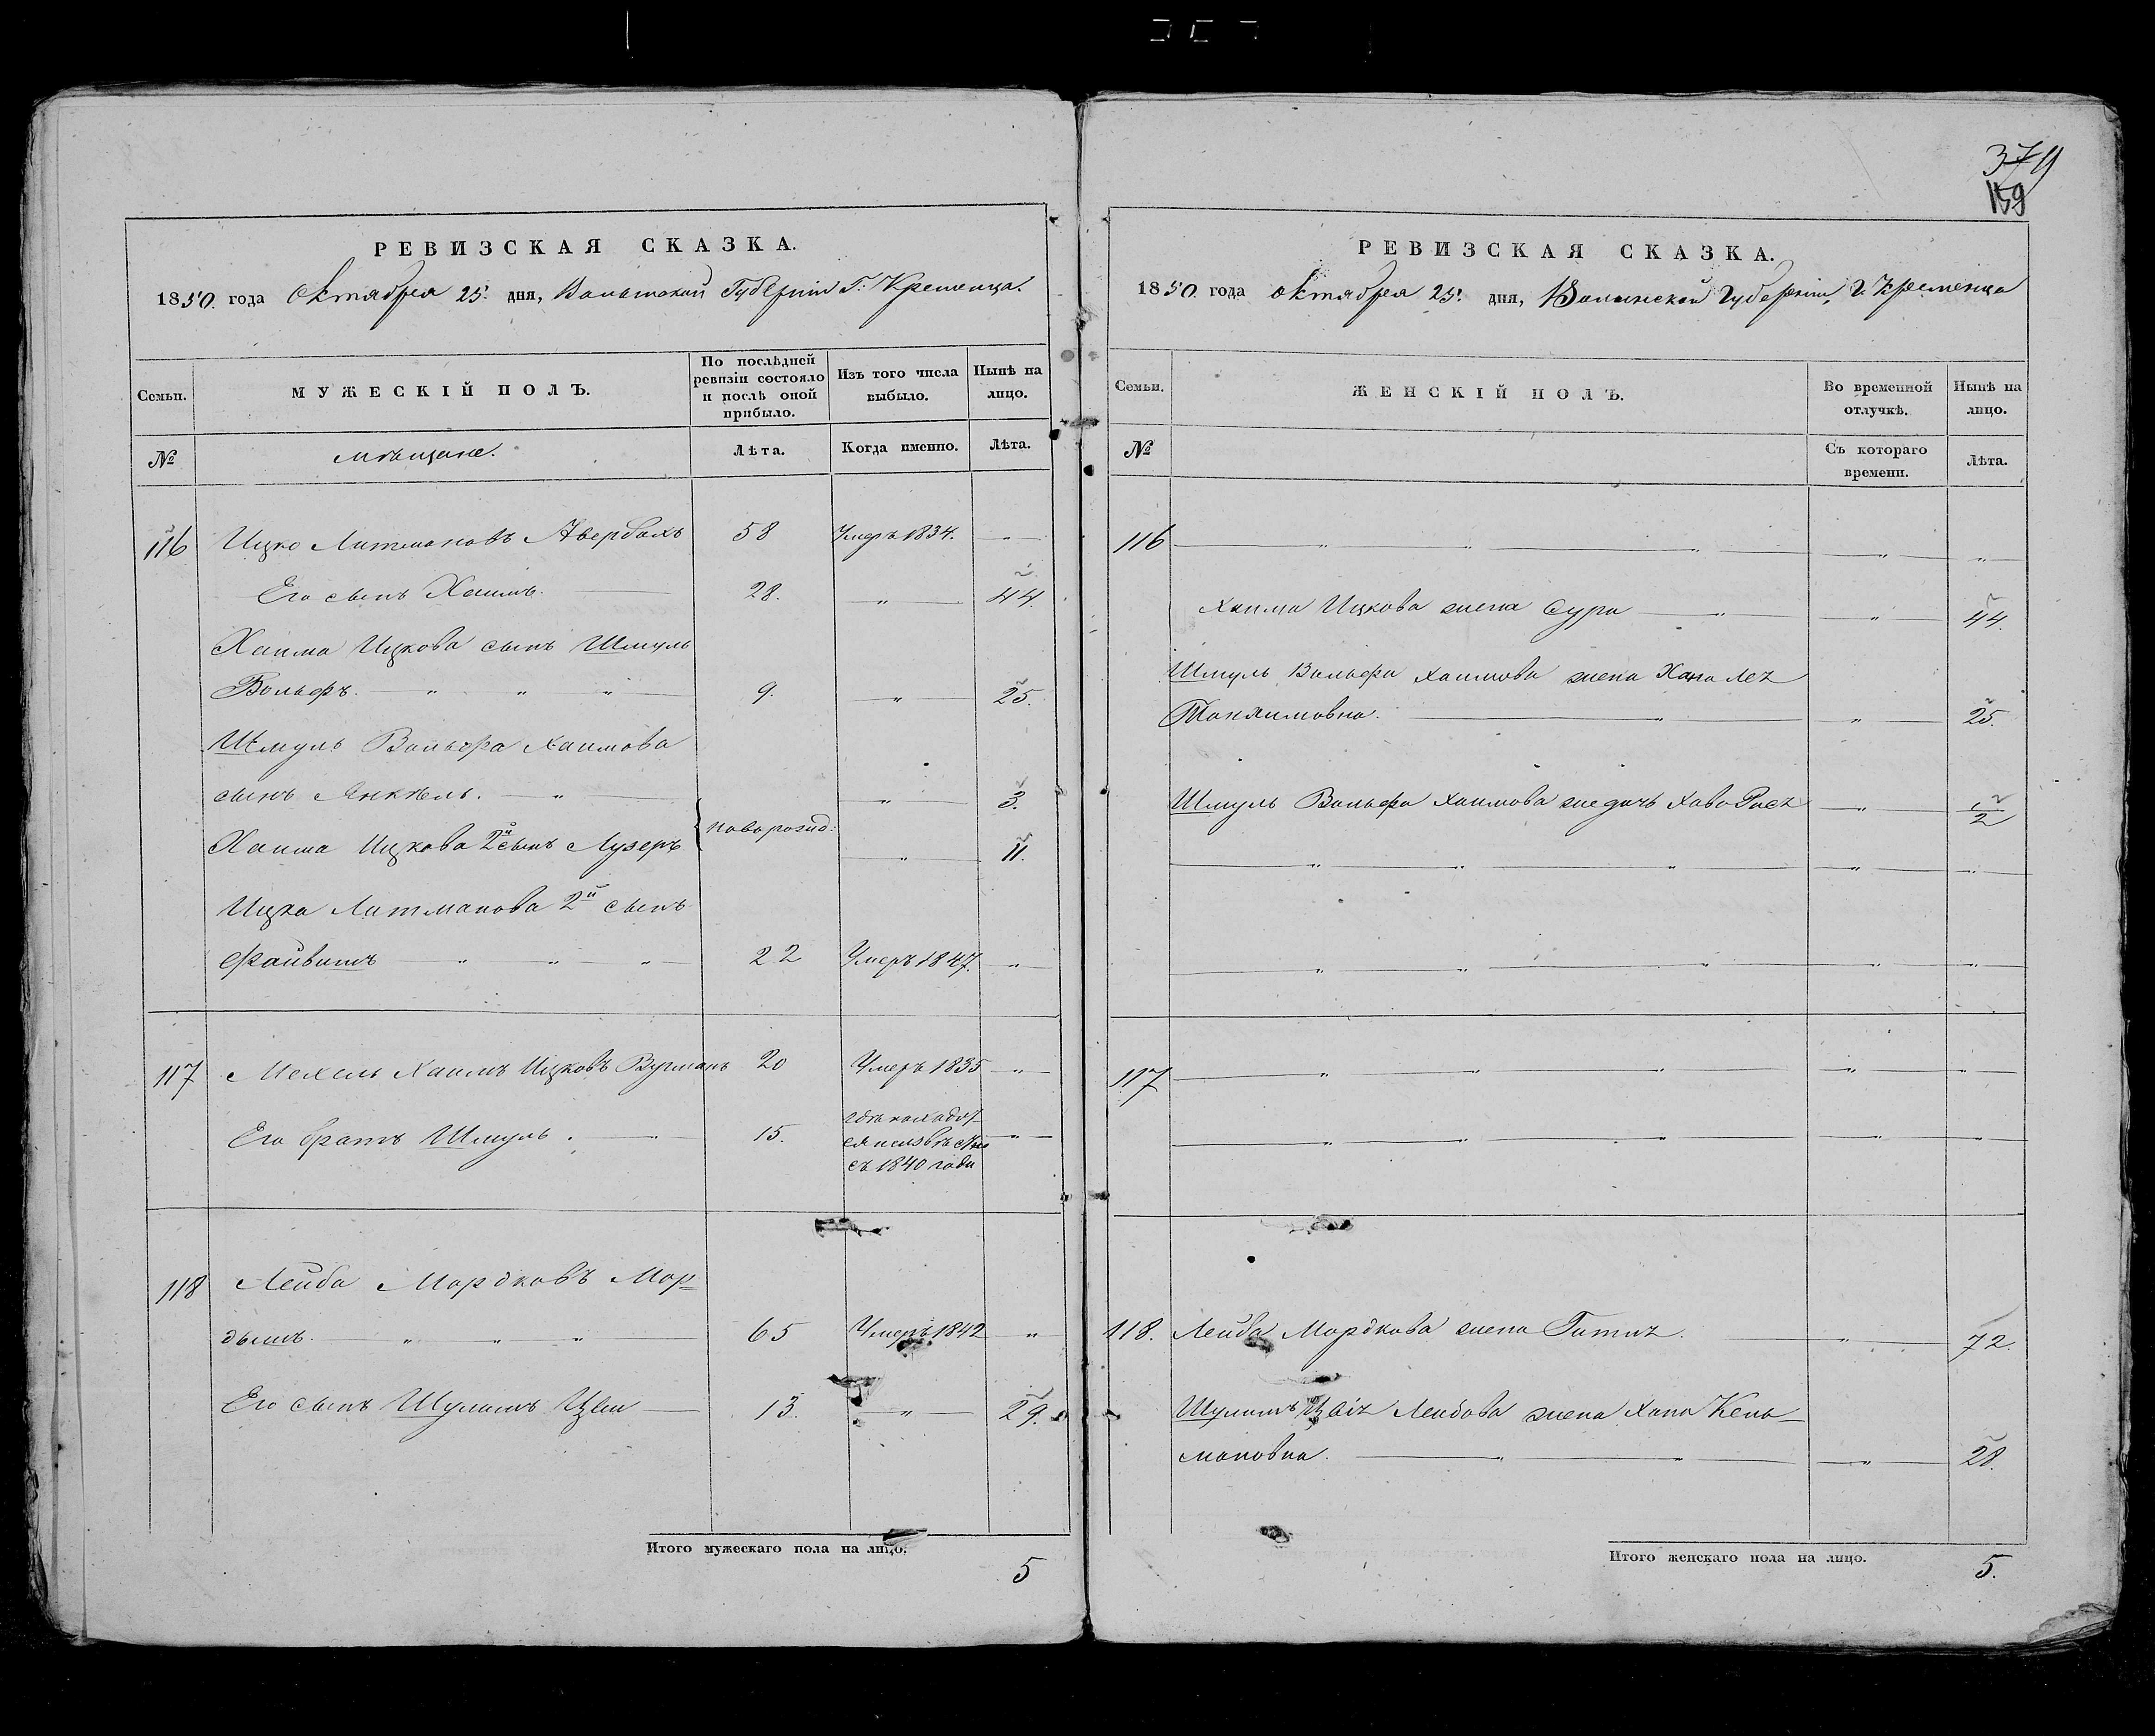 РЕВИЗСКАЯ СКАЗКА.
1850. года Октября 25. дня, Волынской Губерніи Г. Кременца.
Семьи.
МУЖЕСКІЙ ПОЛЪ.
По послѣдней ревизіи состояло и послѣ оной прибыло.
Изъ того числа выбыло.
Нынѣ на лицо.
№
мѣщане.
Лѣта.
Когда именно.
Лѣта.
116 Ицко Литмановъ Авербахъ 58 Умеръ 1834.
Его сынъ Хаимъ. 28. " 44.
Хаима Ицкова сынъ Шмуль
Вольфъ. " " " 9. " 25.
Шмуль Вольфа Хаимова
сынъ Янкель. " " 3.
новорожд:
Хаима Ицкова 2й сынъ Лузеръ " 11.
Ицка Литманова 2й сынъ
Файвишъ " " " 22 Умеръ 1847. "
117 Мехель Хаимъ Ицковъ Вугманъ 20 Умеръ 1835 "
Его братъ Шмуль. " 15. "
съ 1840 года
118 Лейба Мордковъ Мор=
дышъ. " " " 65 Умеръ 1842 "
Его сынъ Шулимъ Цви 13. " 29.
Итого мужескаго пола на лицо.
5
379
159
РЕВИЗСКАЯ СКАЗКА.
1850. года октября 25. дня, Волынской Губерніи, Г. Кременца
Семьи.
ЖЕНСКІЙ ПОЛЪ.
Во временной отлучкѣ.
Нынѣ на лицо.
№
Съ котораго времени.
Лѣта.
116 " " " " "
Хаима Ицкова жена Сура " " 44.
Шмуль Вольфа Хаимова жена
" " 25.
Шмуль Вольфа Хаимова " 1/2
" " " " "
" " " " "
117 " " " " "
" " " " "
118. Лейба Мордкова жена " 72.
Шулимъ Лейбова жена Хана Кель=
мановна. " " " 28.
Итого женскаго пола на лицо.
5.